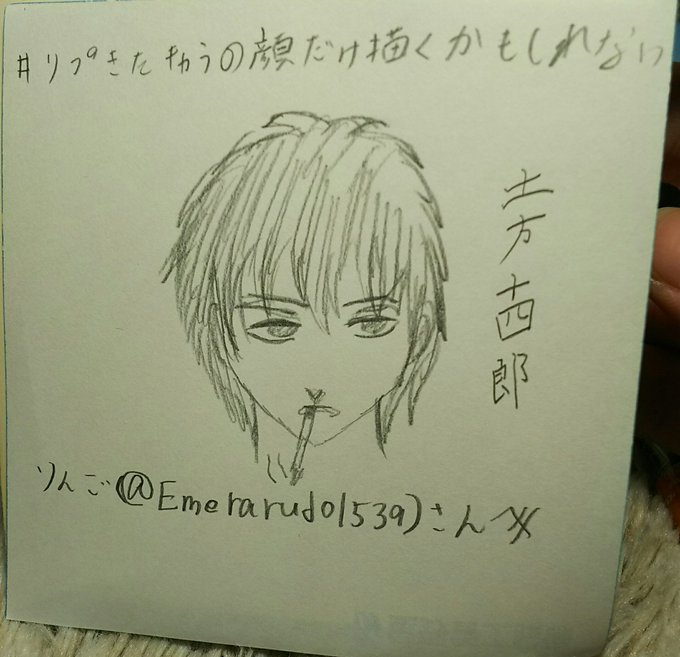 #リプきたキャラの顔だけ描くかもしれない
土方十四郎
りんご(@Emerarudo1539)さんへ